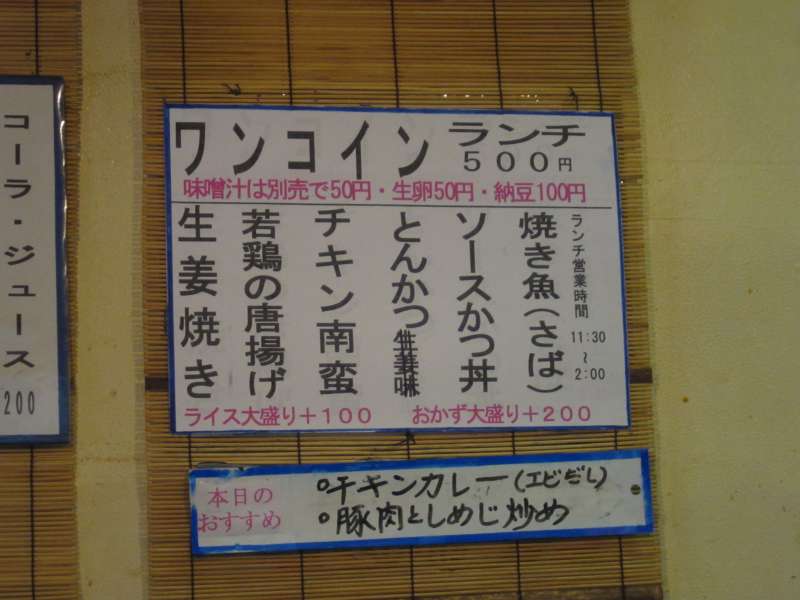 コーラ・ジュース
200
ワンコイン ランチ
500円
味噌汁は別売で50円・生卵50円・納豆100円
ランチ営業時間 11:30～2:00
焼き魚(さば)
ソースかつ丼
とんかつ
チキン南蛮
若鶏の唐揚げ
生姜焼き
ライス大盛り+100 おかず大盛り+200
本日の
おすすめ
チキンカレー(エビだし)
豚肉としめじ炒め